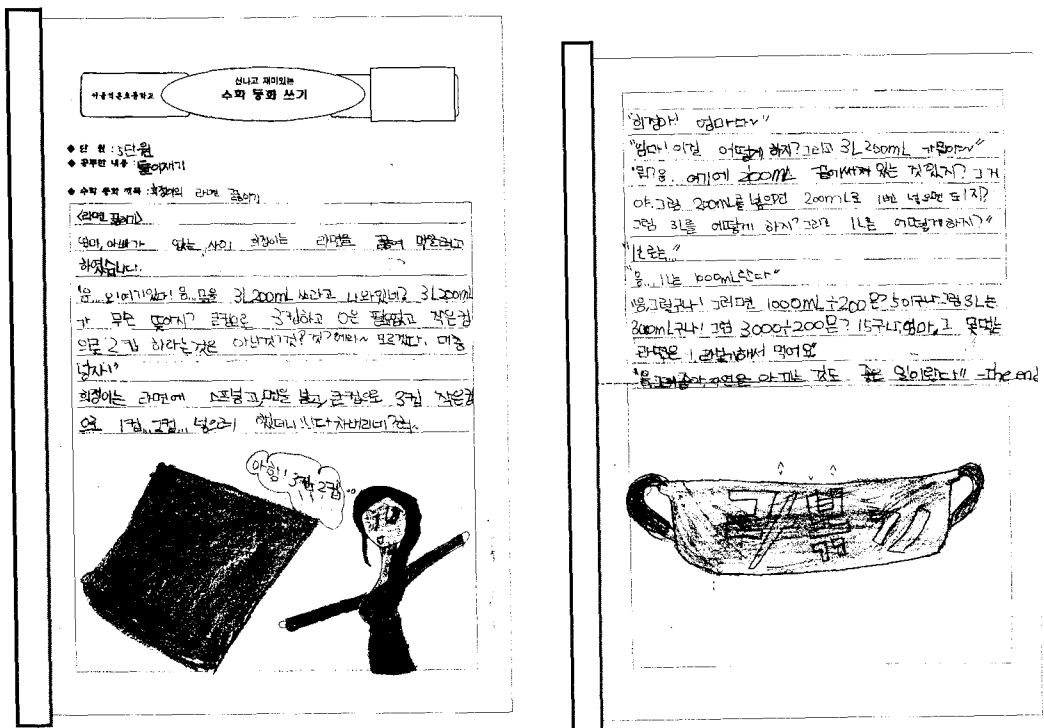 신나고 재미있는
수학 동화 쓰기
◆ 단 원 : 5단원
◆ 공부한 내용 : 들이재기
◆ 수학 동화 제목 : 희정이의 라면 끓이기
<라면 끓이기>
엄마, 아빠가 없는 사이 희정이는 라면을 끓여 먹을려고
하였습니다.
"음... 오! 여기있다! 음.. 물을 3L 200mL 쓰라고 나와있네? 3L 200mL
가 무슨 뜻이지? 큰컵으로 3컵하고 0은 필요없고 작은컵
으로 2컵 하라는것은 아닌것? 에라~ 모르겠다. 대충
넣자!"
희정이는 라면에 스프넣고, 면을 넣고, 큰컵으로 3컵 작은컵
으로 1컵, 2컵... 넣으려 했더니 다 차버리네?
아함! 3컵 2컵..
"희정아! 엄마다~"
"엄마! 이걸 어떻게 하지? 그리고 3L 200mL 가 뭐야~"
"음. 여기에 200mL 써 있는 것 있지? 그거
야. 그럼 200mL를 넣으면 200mL로 1번 넣으면 되지?
그럼 3L를 어떻게 하지? 그리고 1L는 어떻게 하지?"
"음. 1L는 1000mL란다"
"음. 그렇구나! 그러면 1000mL÷200은? 5이구나. 그럼 3L는
3000mL구나! 그럼 3000÷200은? 15구나. 엄마, 그 못먹는
라면은 먹어요"
"음. 그래. 좋아 자연을 아끼는 것도 좋은 일이란다" -The end